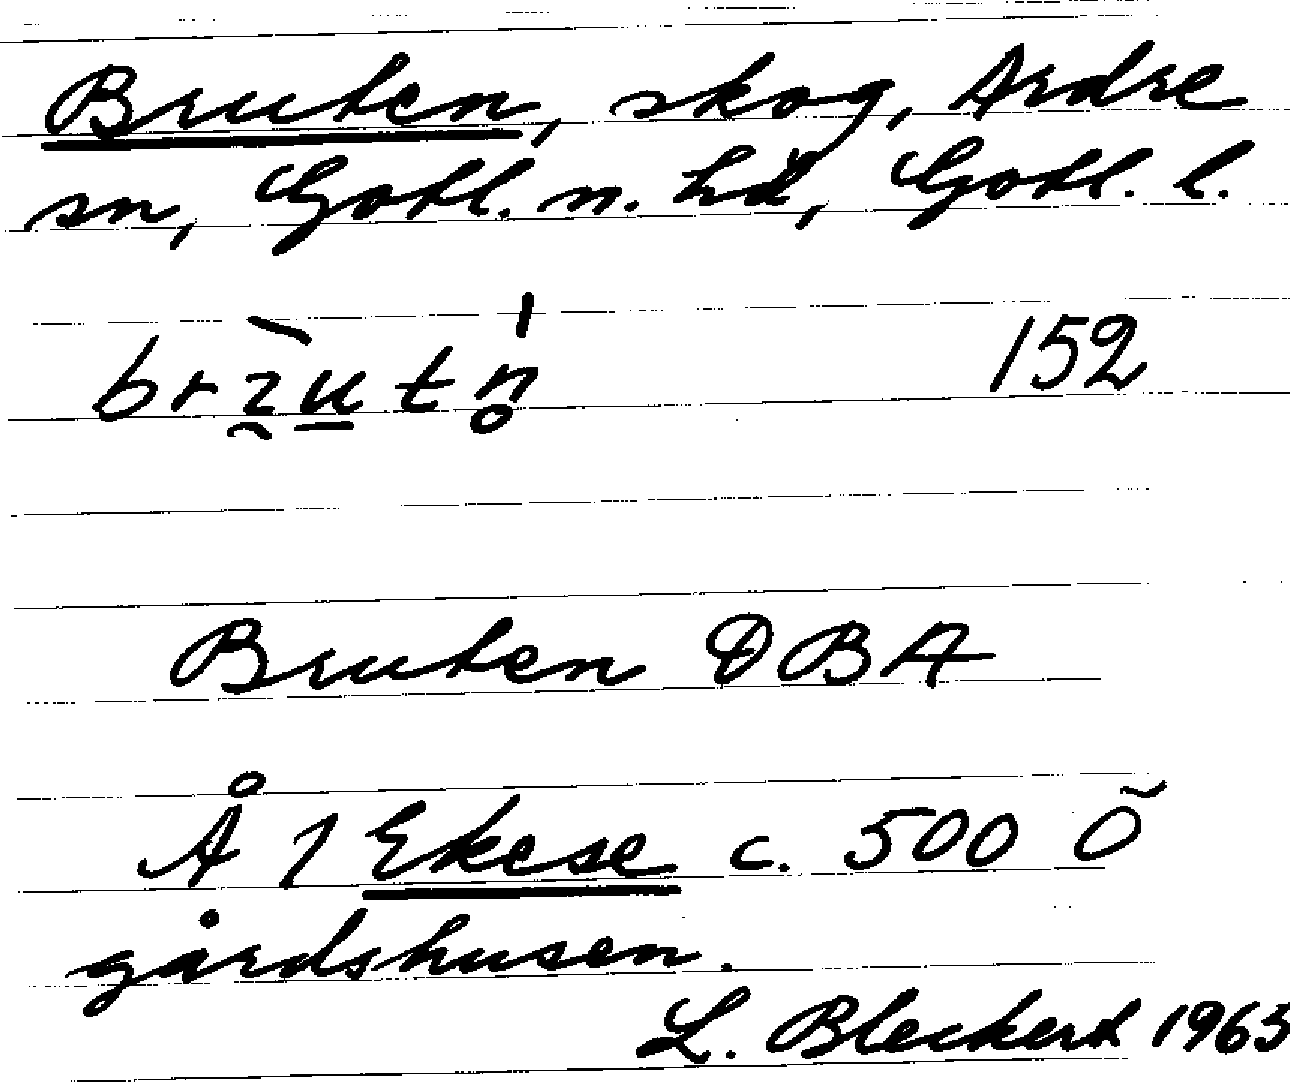 Bruten, skog, Ardre
sn, Gotl. n. hd, Gotl. l.
brꞮ̯̀u̲tn̥̍ 152
Bruten DBA
Å 1 Ekese c. 500 Ö
gårdshusen.
L. Bleckert 1963